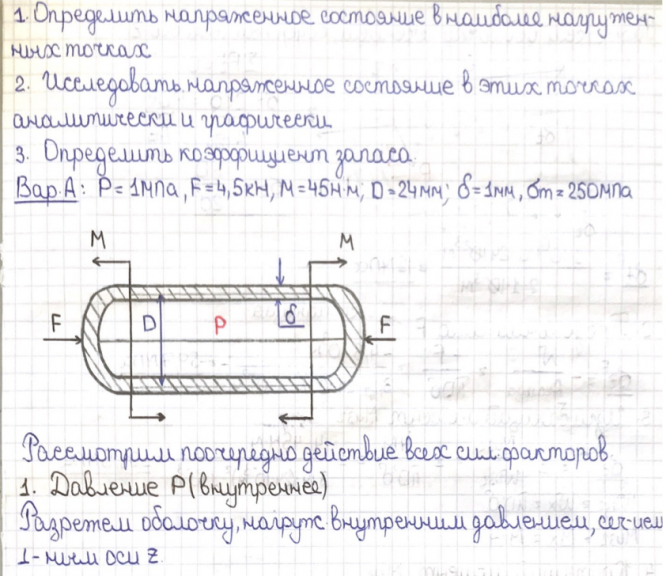 1. Определить напряженное состояние в наиболее нагружен-
ных точках
2. Исследовать напряженное состояние в этих точках
аналитически и графически
3. Определить коэффициент запаса.
Вар.А: P=1МПа, F=4,5кН, М=45Н·м, D=24мм; δ=1мм, σт=250МПа
М М
δ
F D P F
Рассмотрим поочередно действие всех сил. факторов
1. Давление P(внутреннее)
Разрежем оболочку, нагруж. внутренним давлением, сеч-ием
1-ным оси z.